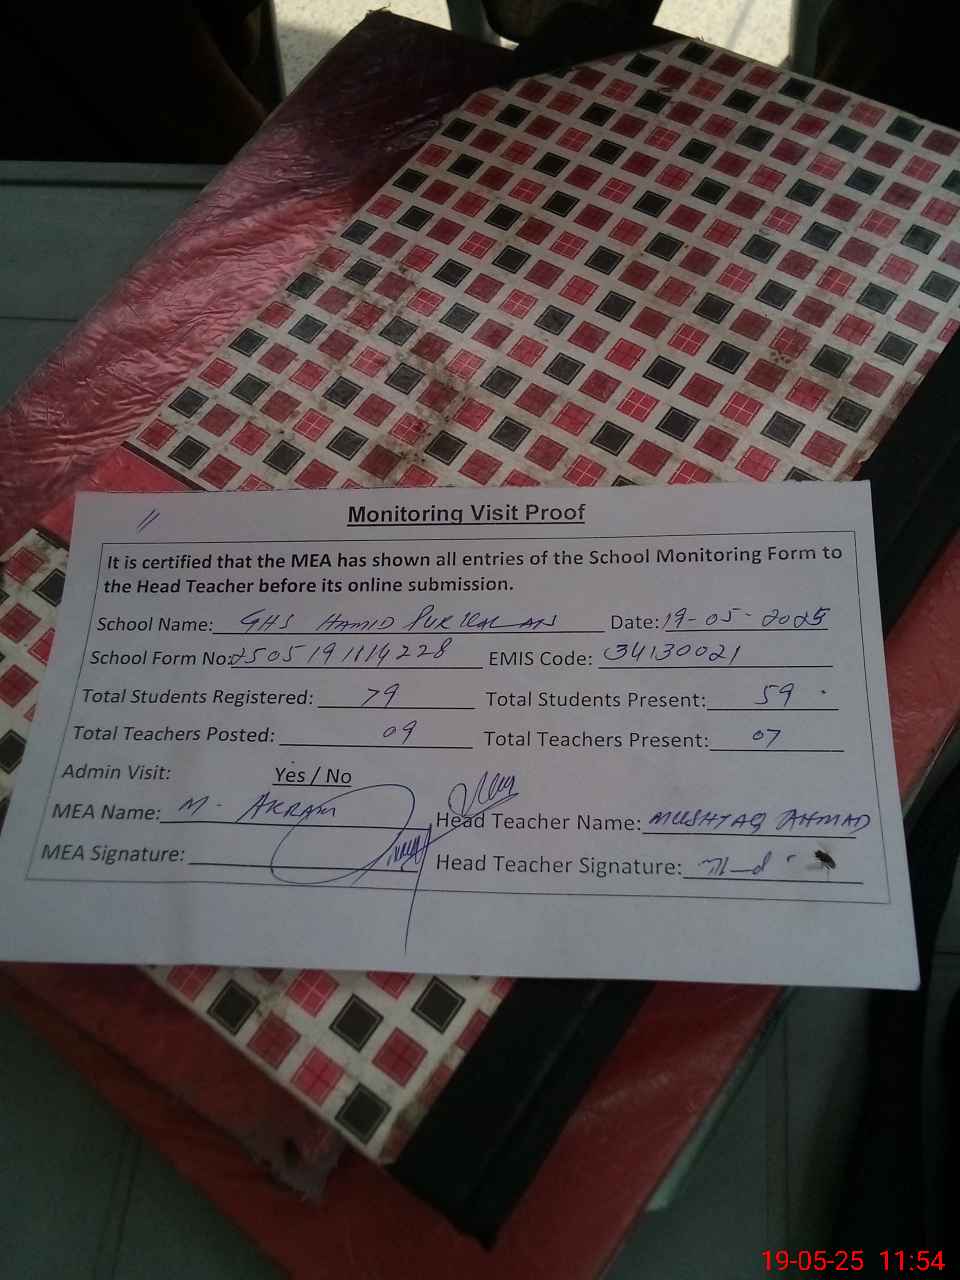 11
Monitoring Visit Proof
It is certified that the MEA has shown all entries of the School Monitoring Form to
the Head Teacher before its online submission.
School Name: GHS HAMID PUR KALAN Date: 19-05-2025
School Form No: 2505191114228 EMIS Code: 34130021
Total Students Registered: 79 Total Students Present: 59
Total Teachers Posted: 09 Total Teachers Present: 07
Admin Visit: Yes / No
MEA Name: M. AKRAM Head Teacher Name: MUSHTAQ AHMAD
MEA Signature: Head Teacher Signature:
19-05-25 11:54